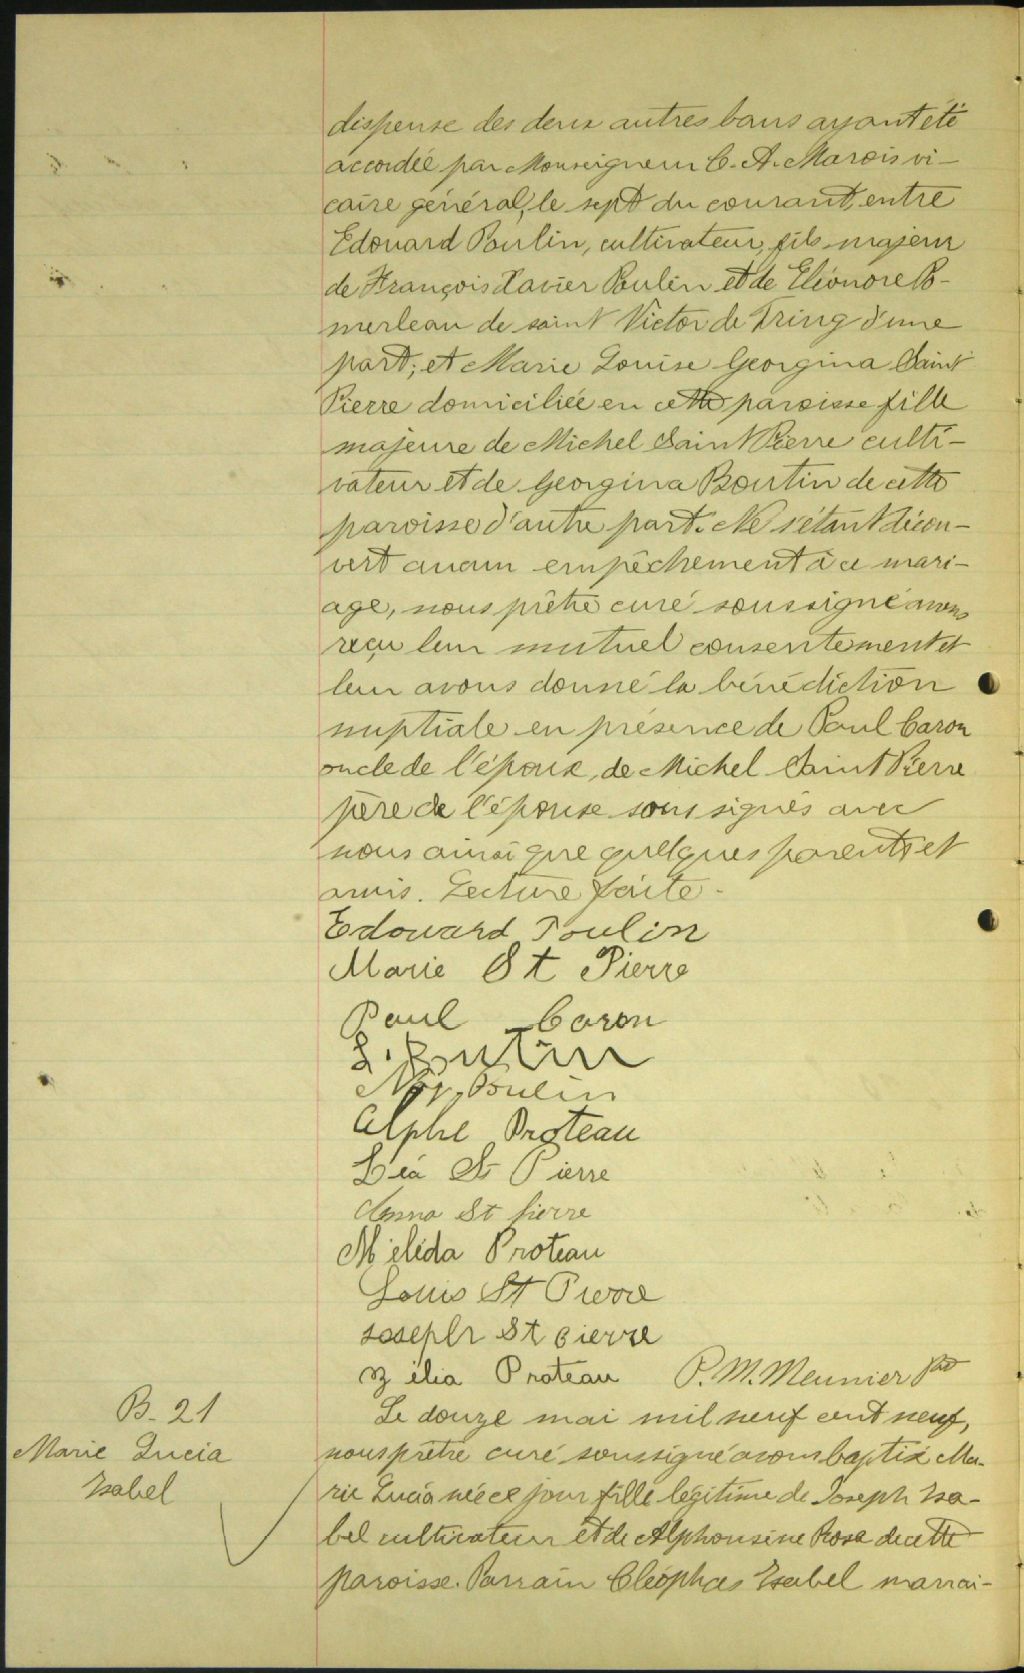 dispense des deux autres bans ayant été
accordée par Monseigneur C. A. Marois vi-
caire général, le sept du courant, entre
Edouard Poulin, cultivateur, fils majeur
de François Xavier Poulin et de Eléonore Po-
merleau de saint Victor de Tring d'une
part; et Marie Louise Georgina Saint
Pierre domiciliée en cette paroisse fille
majeure de Michel Saint Pierre culti-
vateur et de Georgina Boutin de cette
paroisse d'autre part. Ne s'étant décou-
vert aucun empêchement à ce mari-
age, nous prêtre curé soussigné avons
reçu leur mutuel consentement et
leur avons donné la bénédiction
nuptiale en présence de Paul Caron
oncle de l'époux, de Michel Saint Pierre
père de l'épouse soussignés avec
nous ainsi que quelques parents et
amis. Lecture faite.
Edouard Poulin
Marie St Pierre
Paul Caron
L. Boutin
Nap. Poulin
Alphe Proteau
Léa St Pierre
Anna St pierre
Mélida Proteau
Louis St Pierre
Joseph St Pierre
Zélia Proteau P. M. Meunier Ptre
B. 21
Marie Lucia
Isabel
Le douze mai mil neuf cent neuf,
nous prêtre curé soussigné avons baptisé Ma-
rie Lucia née ce jour fille légitime de Joseph Isa-
bel cultivateur et de Alphonsine Rosa de cette
paroisse. Parrain Cléophas Isabel marrai-